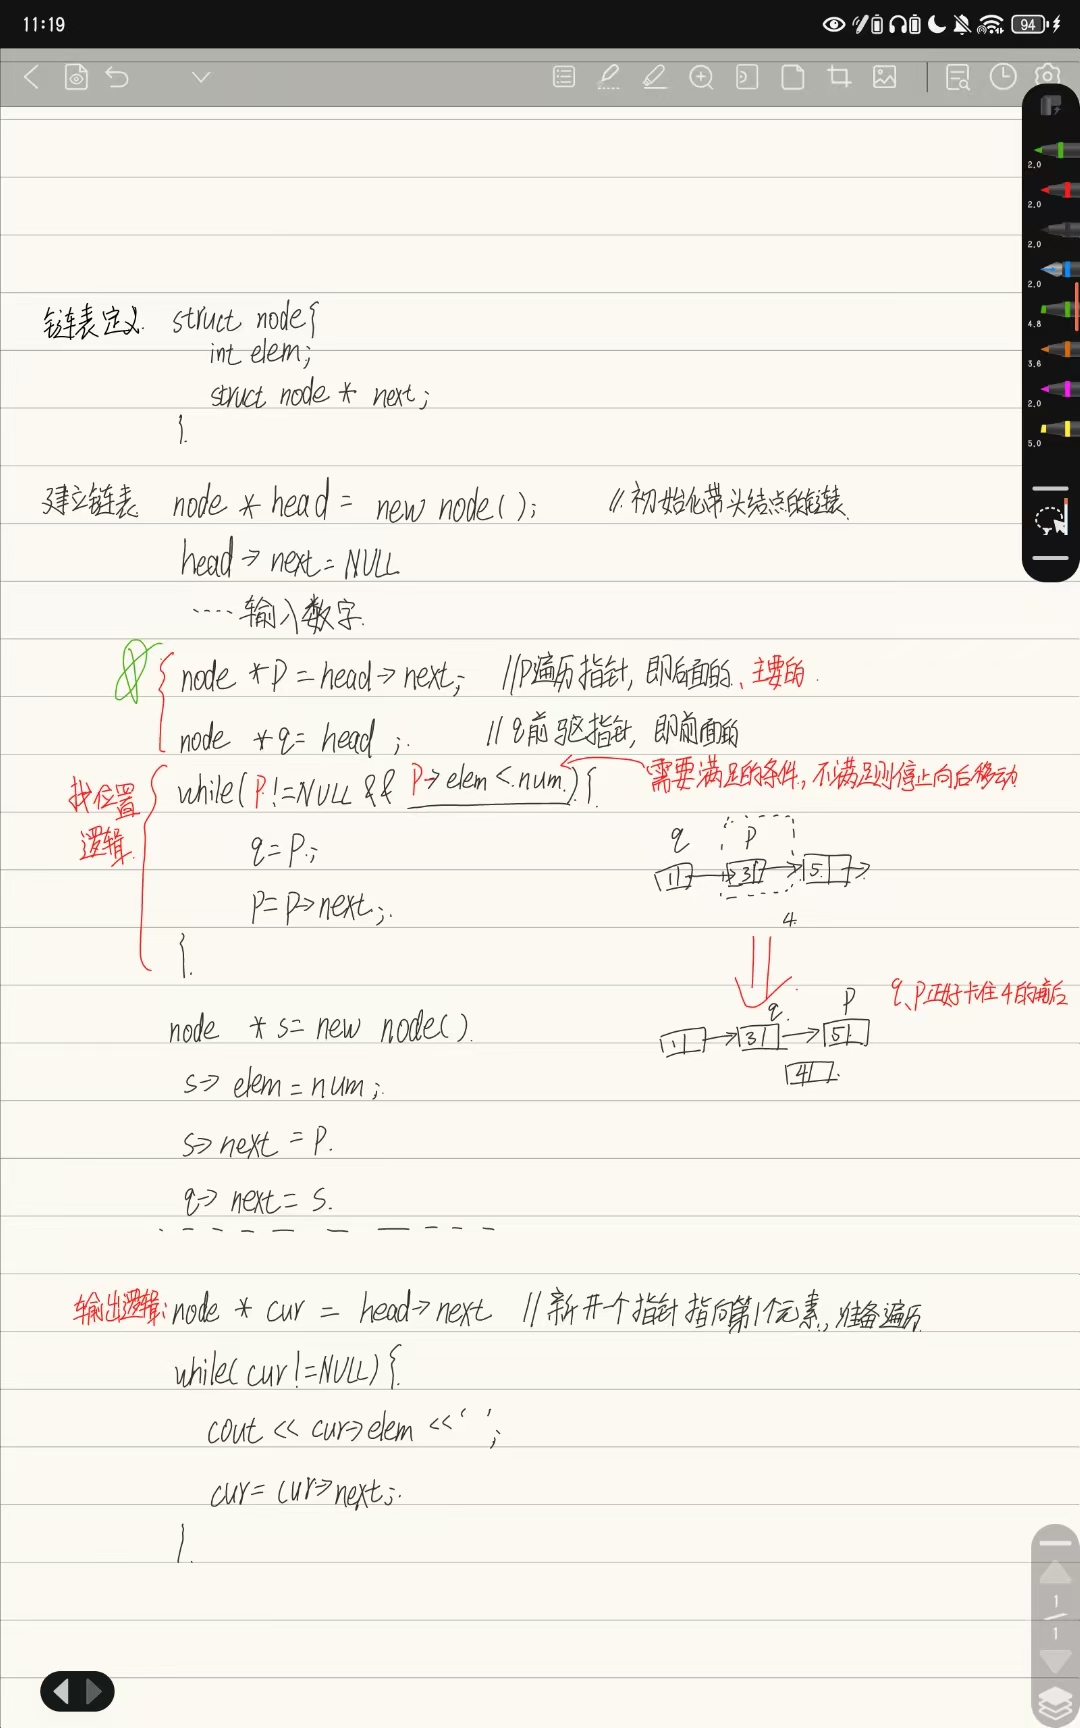 11:19
94
2.0
2.0
2.0
2.0
4.8
3.6
2.0
5.0
链表定义. struct node{
int elem;
struct node * next;
}.
建立链表 node * head = new node( ); //初始化带头结点的链表.
head→next=NULL
····输入数字.
node *P=head→next; //P遍历指针, 即后面的、主要的.
node *q= head ; //q前驱指针, 即前面的
找位置逻辑. while(P!=NULL && P→elem<num){ 需要满足的条件, 不满足则停止向后移动
q=P;
P=P→next;
}.
q P
1 3 5
4
q P q、P正好卡住4的前后
1 3 5
4
node *s=new node().
s→elem=num;
s→next=P.
q→next=s.
输出逻辑: node * cur = head→next //新开个指针指向第1个元素, 准备遍历
while(cur!=NULL){
cout << cur→elem <<' ';
cur= cur→next;
}.
1
1